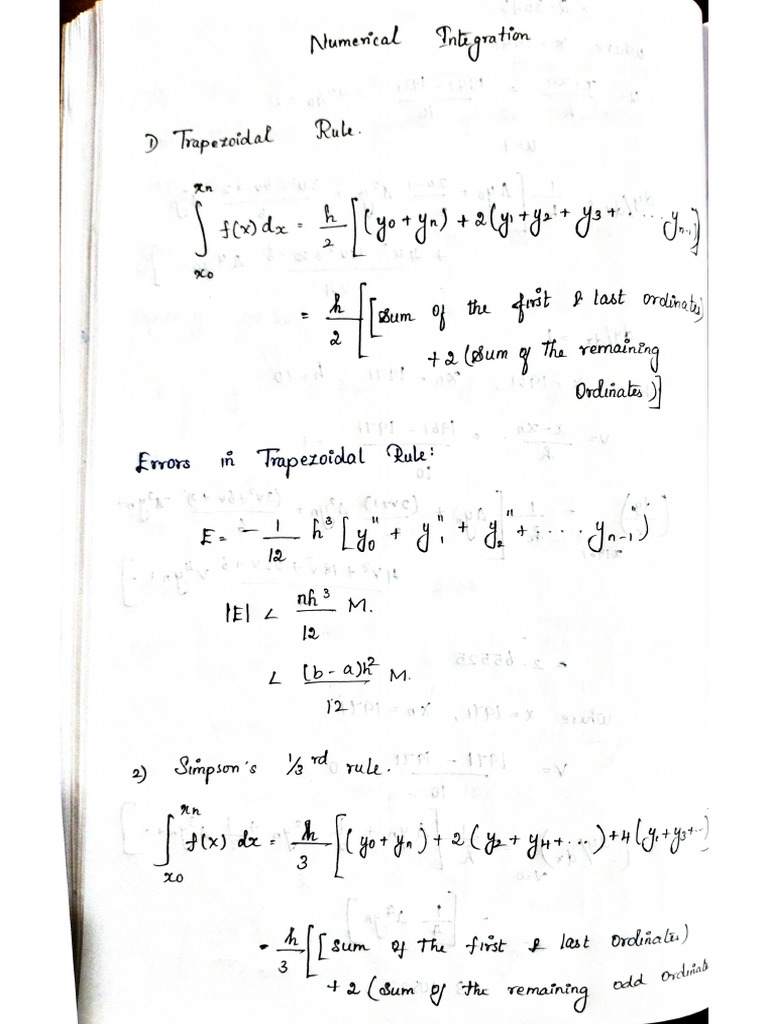 Numerical Integration
1) Trapezoidal Rule.
∫_{x0}^{xn} f(x) dx = h/2 [(y0 + yn) + 2(y1 + y2 + y3 + .... yn-1)]
= h/2 [[Sum of the first & last ordinates)
+ 2 (Sum of the remaining
Ordinates)]
Errors in Trapezoidal Rule:
E = - 1/12 h³ [y0'' + y1'' + y2'' + .... yn-1'')
|E| < nh³/12 M.
< (b-a)h²/12 M.
2) Simpson's 1/3 rd rule.
∫_{x0}^{xn} f(x) dx = h/3 [(y0 + yn) + 2 (y2 + y4 + ...) + 4(y1 + y3 + ..)
= h/3 [[Sum of the first & last Ordinates)
+ 2 (Sum of the remaining odd Ordinates